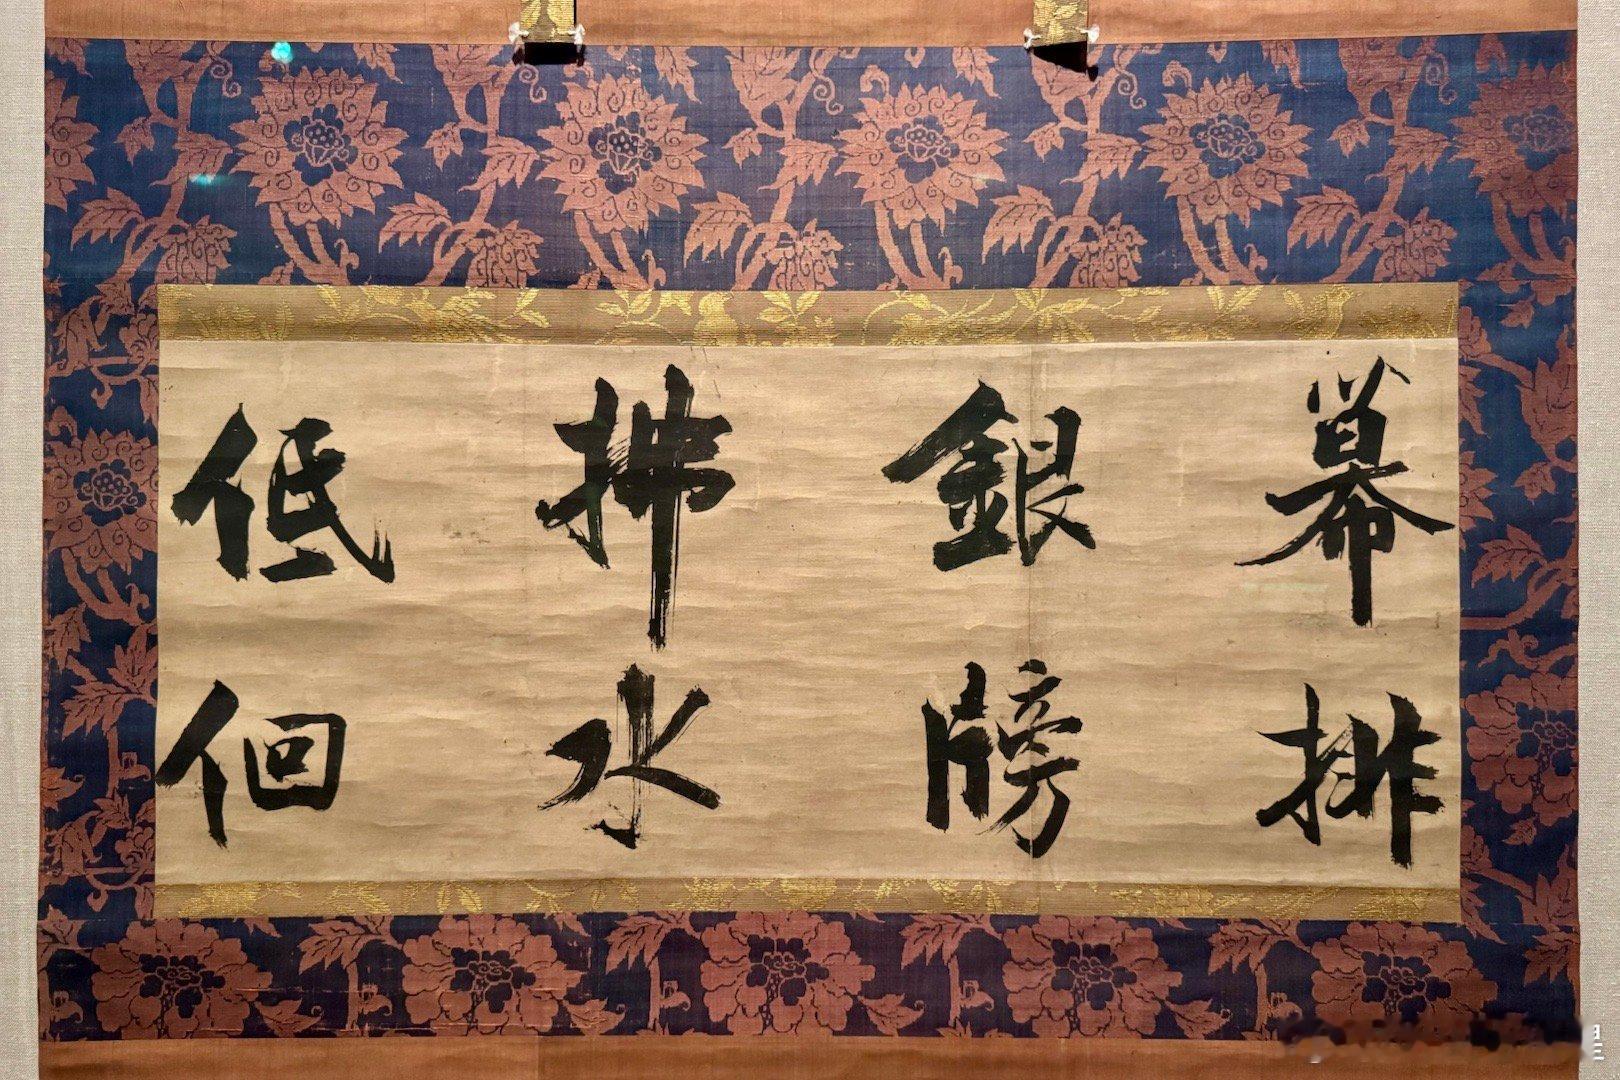 幕排
銀牓
拂水
低佪